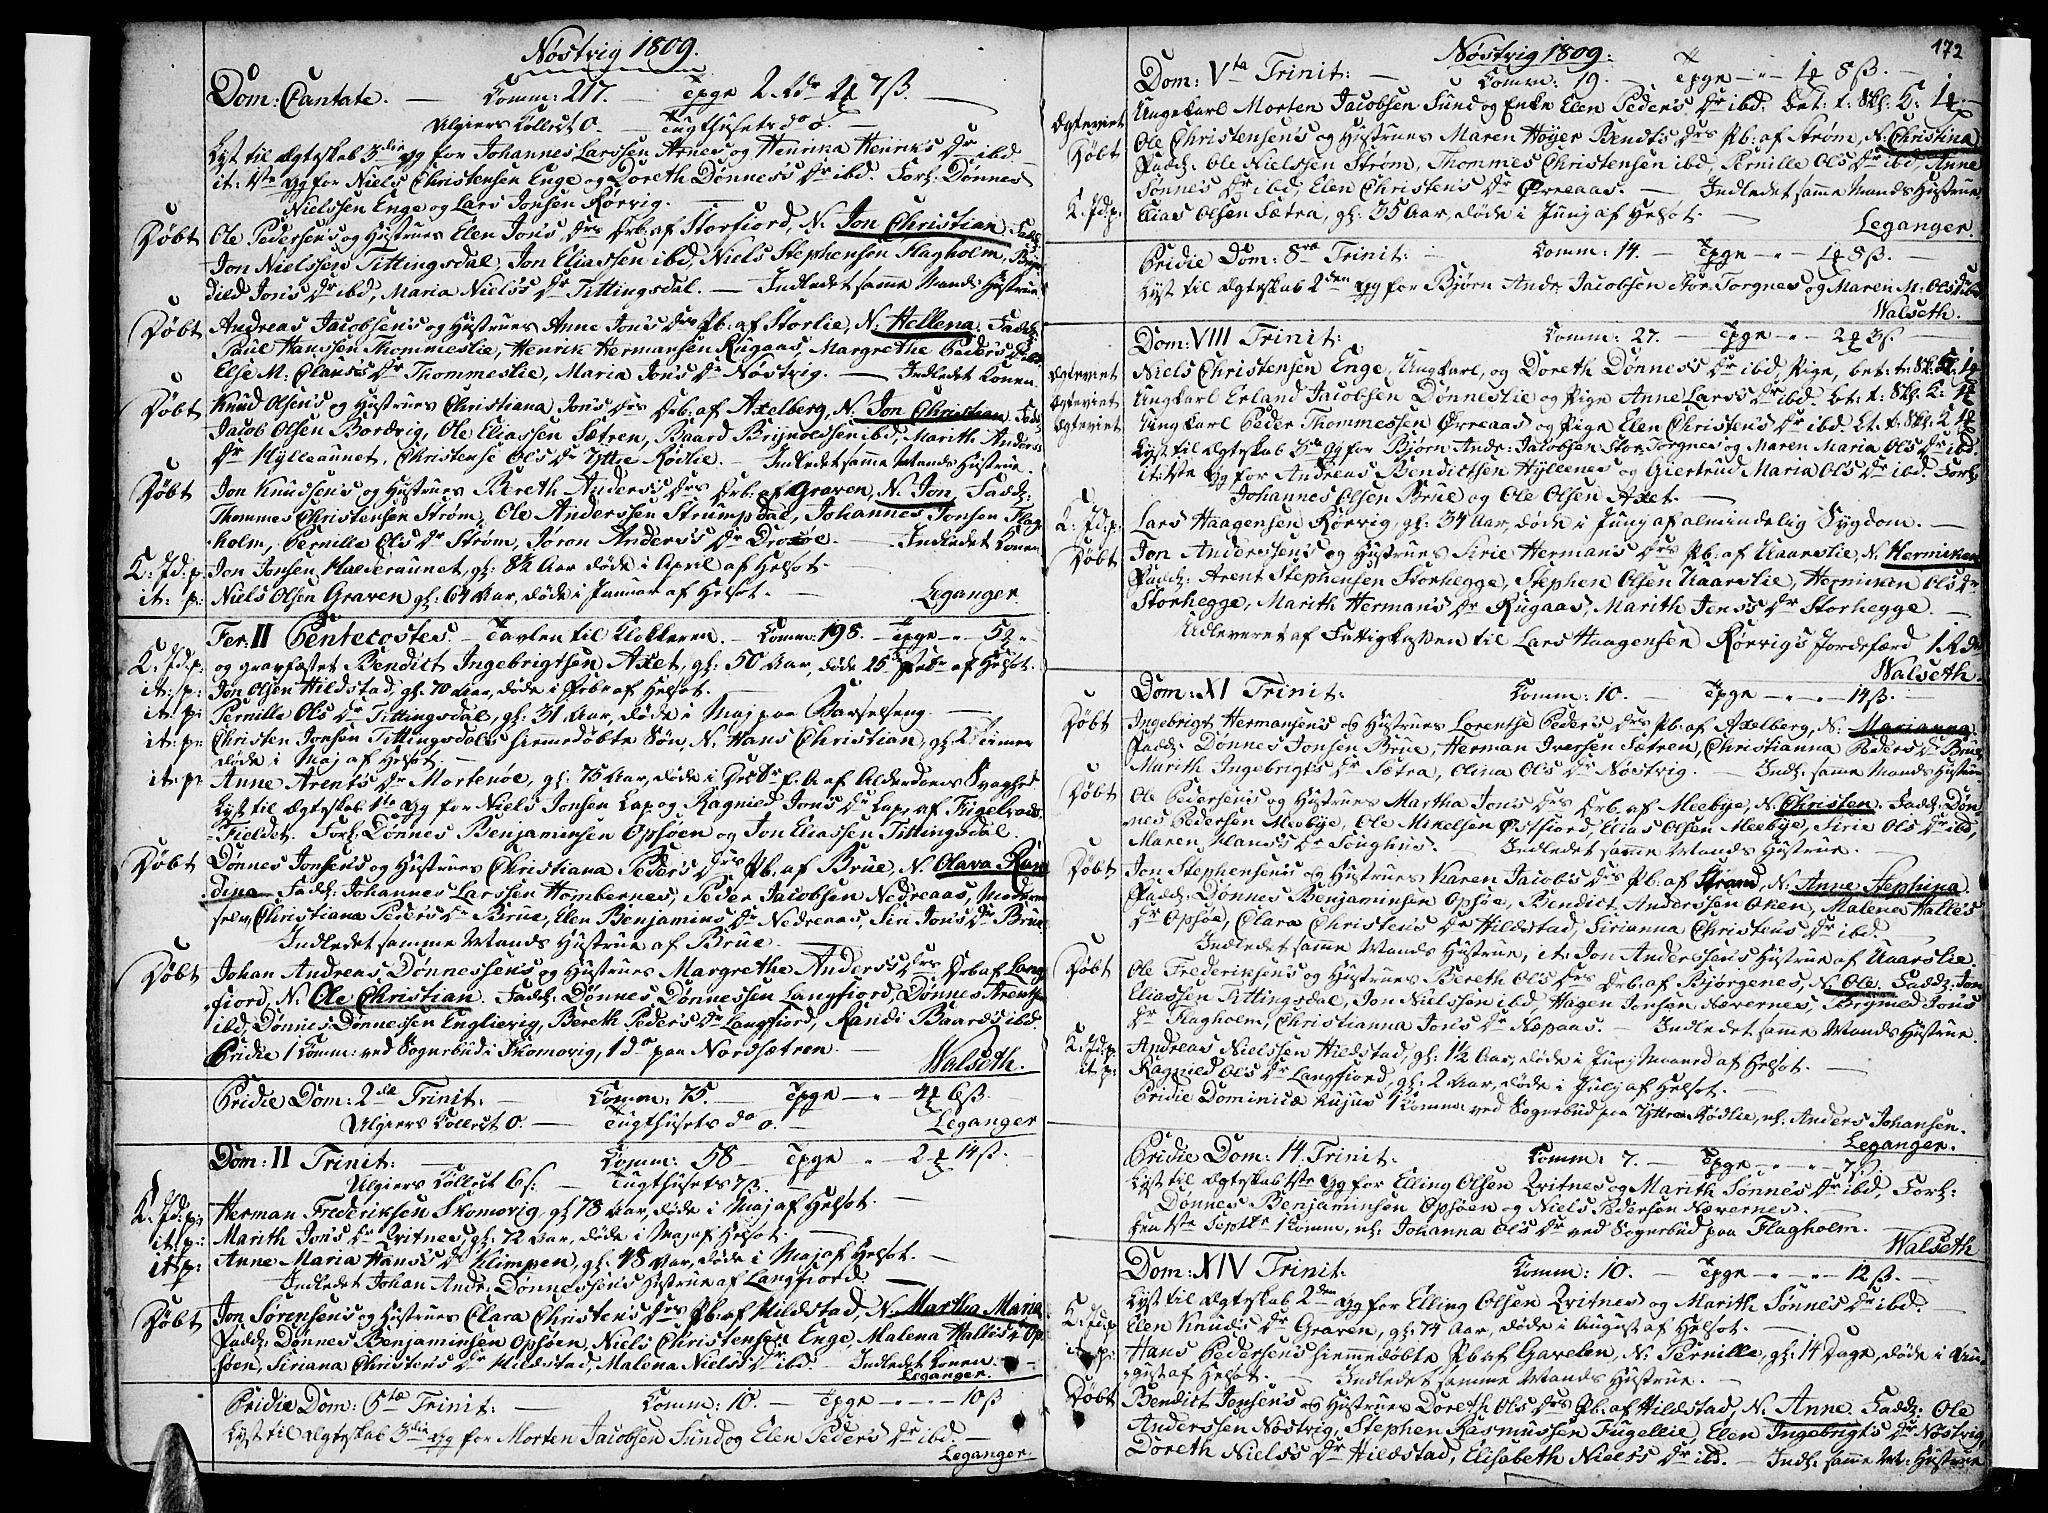 Nøstvig 1809.
Dom: Cantate. — Komm: 217. — Tpge 2 Rdr 2 7ß. —
Algiers Collect 0. — Tugthusets do 0. —
Lyst til Ægteskab 3die Gg for Johannes Larssen Arnes og Henrina Henrik's Dr ibd. —
it: 1ste Gg for Niels Christensen Enge og Doreth Dønnes's Dr ibd. Forl: Dønnes
Nielssen Enge og Lars Jonsen Rørvig. —
Døbt Ole Pedersens og Hustrues Elen Jon's Drs Drb. af Storfiord, N. Jon Christian. Fadd:
Jon Nielssen Tittingsdal, Jon Eliassen ibd, Niels Stephensen Flagholm,
dild Jon's Dr ibd, Maria Niels's Dr Tittingsdal. — Indledet samme Mands Hustrue
Døbt Andreas Jacobsen's og Hustrues Anne Jon's Drs Pb: af Storlie, N. Hellena. Fadd:
Paul Hanssen Thommeslie, Henrik Hermansen Rugaas, Margrethe Peder's Dr ibd,
Else M: Claus's Dr Thommeslie, Maria Jon's Dr Nøstvig. — Indledet Konen.
Døbt Knud Olsen's og Hustrues Christiana Jon's Drs Drb: af Axelberg, N. Jon Christian. Fadd:
Jacob Olsen Bordvig, Ole Eliassen Sætren, Baard Brynoldsen ibd, Marith Anders's
Dr Hylleaunet, Christense Ols Dr Yttre Rødlie. — Indledet samme Mands Hustrue.
Døbt Jon Knudsen's og Hustrues Bereth Anders's Drs Drb: af Graven, N. Jon. Fadd:
Thommes Christensen Strøm, Ole Anderssen Strumpdal, Johannes Jonsen Flag-
holm, Pernille Ols Dr Strøm, Joron Anders's Dr — Indledet Konen
K: Jd: p: Jon Jonsen Halderaunet, gl: 8½ Aar døde i April af Helsot. —
it: p: Niels Olsen Graven gl: 64 Aar, døde i Januar af Helsot. — Leganger.
Fer: II Pentecostes. — Tavlen til Klokkeren. — Komm: 198. — Tpge
K: Jd: p: og gravfæstet Bendict Ingebrigtsen Axet, gl: 50 Aar, døde 15 af Helsot.
it: p: Jon Olsen Hildstad, gl: 70 Aar, døde i Febr af Helsot. —
it: p: Pernille Ols Dr Tittingsdal, gl: 31 Aar, døde i Maj paa Barselseng —
it: p: Christen Jonsen Tittingsdals hiemmedøbte Søn, N. Hans Christian, gl: 2 Timer
døde i Maj af Helsot. —
it: p: Anne Arents Dr Mortenøe, gl: 75 Aar, døde i af Alderdoms Svaghed
Lyst til Ægteskab 1ste Gg for Niels Jonsen Lap og Ragnild Jon's Dr Lap, af
Fieldet. Forl: Dønnes Benjaminsen Opsøen og Jon Eliassen Tittingsdal.
Døbt Dønnes Jonsen's og Hustrues Christiana Peder's Drs Pb. af Brue, N. Olava Ran
dina. Fadd: Johannes Larssen Hombernes, Peder Jacobsen Nedreaas, Moderen
selv, Christiana Peder's Dr Brue, Elen Benjamins Dr Nedreaas, Siri Jon's Dr Brue
Indledet samme Mands Hustrue af Brue —
Døbt Johan Andreas Dønnessen's og Hustrues Margrethe Anders's Drs Drb. af Lang
fiord, N. Ole Christian. Fadd: Dønnes Dønnessen Langfiord, Dønnes Arentsen
ibd, Dønnes Dønnessen Englievig, Bereth Peder's Dr Langfiord, Randi Baard's ibd
Pridie 1 Komm: ved Sognebud i Skomovig, 1 do paa Nordsætren. — Walseth.
Pridie Dom: 2da Trinit: — Komm: 75. — Tpge — " 4 6ß. —
Algiers Collect 0. — Tugthusets do 0. — Leganger
Dom: II Trinit: — Komm: 58 — Tpge " 2 14ß. —
Algiers Collect 6s: — Tugthusets 7ß.
K: Jd: p: Herman Frederiksen Skomovig, gl: 78 Aar, døde i Maj af Helsot. —
it: p: Marith Jon's Dr Qvitnes, gl: 72 Aar, døde i Maj af Helsot. —
it: p: Anne Maria Hans's Dr Klimpen, gl: 48 Aar, døde i Maj af Helsot. —
Indledet Johan Andr: Dønnessen's Hustrue af Langfiord. —
Døbt Jon Sørensen's og Hustrues Clara Christens Drs Pb: af Hildstad, N. Martha Maria.
Fadd: Dønnes Benjaminsen Opsøen, Niels Christensen Enge, Malena Halles Dr Op
søen, Siriana Christens Dr Hildstad, Malena Niels's Dr ibd. — Indledet Konen.
Leganger.
Pridie Dom: 5tæ Trinit: — Komm: 10. — Tpge — " — " — 10ß
Lyst til Ægteskab 3die Gg for Morten Jacobsen Sund og Elen Peder's Dr ibd. —
Leganger.
172
Nøstvig 1809:
Dom: Vta Trinit: — Komm: 19. — Tpge — " 1 8ß. —
Ægteviet Ungekarl Morten Jacobsen Sund og Enke Elen Peder's Dr ibd. bet: t: Skl: K: 1
Døbt Ole Christensen's og Hustrues Maren Høyer Bendt's Drs Pb: af Strøm, N. Christina
Fadd: Ole Nielssen Strøm, Thommes Christensen ibd, Pernille Ols Dr ibd, Anne
Sønnes Dr ibd, Elen Christens Dr Ørreaas. — Indledet samme Mands Hustrue
K: Jd: p: Elias Olsen Sætra, gl: 35 Aar, døde i Junj af Helsot. —
Leganger.
Pridie Dom: 8va Trinit: — Komm: 14. — Tpge — " — 1 8ß. —
Lyst til Ægteskab 2den Gg for Bjørn Andr: Jacobsen Stor Torgnes og Maren M: Ols Dr ibd
Walseth.
Dom: VIII Trinit: Komm: 27. — Tpge — " 2 3ß. —
Ægteviet Niels Christensen Enge, Ungkarl, og Doreth Dønnes's Dr ibd, Pige, bet: t: Skl: K: 1
Ægteviet Ungkarl Erland Jacobsen Dønneslie og Pige Anne Lars's Dr ibd. bt: t: Skl: K: 1
Ægteviet Ung Karl Peder Thommessen Ørreaas og Pige Elen Christens Dr ibd. bt: t: Skl: K 1
Lyst til Ægteskab 3die Gg for Bjørn Andr: Jacobsen Stor Torgnes og Maren Maria Ols Dr ibd.
it: 1ste Gg for Andreas Bendictsen Hyleenes og Giertrud Maria Ols Dr ibd. Forl:
Johannes Olsen Brue og Ole Olsen Axet. —
K: Jd: p: Lars Haagensen Rørvig, gl: 34 Aar, døde i Junj af almindelig Sygdom. —
Døbt Jon Anderssen's og Hustrues Sirie Herman's Drs Pb: af Uaarslie, N: Hermiken
Fadd: Arent Stephensen Storhegge, Stephen Olsen Uaarslie, Herniken Ols Dr
Storhegge, Marith Herman's Dr Rugaas, Marith Jens's Dr Storhegge. —
Udleveret af Fattigkassen til Lars Haagensen Rørvig's Jordefærd 1 Rdr
Walseth.
Dom: XI Trinit: Komm: 10. — Tpge — " — " 14ß. —
Døbt Ingebrigt Hermansen's og Hustrues Lorentse Peder's Drs Pb: af Axelberg, N. Marianna.
Fadd: Dønnes Jonsen Brue, Herman Iversen Sætren, Christianna Peders Dr Brue,
Marith Ingebrigt's Dr Sætra, Olina Ols Dr Nøstvig. — Indl: samme Mands Hustrue
Døbt Ole Pedersen's og Hustrues Martha Jon's Drs Drb. af Meebye, N. Christen. Fadd: Døn-
nes Pedersen Meebye, Ole Mikelsen Østfiord, Elias Olsen Meebye, Sirie Ols Dr ibd,
Maren Hans's Dr Songhus. — Indledet samme Mands Hustrue. —
Døbt Jon Stephensen's og Hustrues Karen Jacob's Drs Pb. af Strand, N. Anne Stephina.
Fadd: Dønnes Benjaminsen Opsøe, Bendict Anderssen Oken, Malena Halle's
Dr Opsøe, Clara Christens Dr Hildstad, Sirianna Christens Dr ibd.
Indledet samme Mands Hustrue, it: Jon Anderssens Hustrue af Uaarslie.
Døbt Ole Frederiksens og Hustrues Bereth Ols Drs Drb. af Bjørgenes, N. Ole. Fadd: Jon
Eliassen Tittingsdal, Jon Nielssen ibd Hagen Jonsen Nævernes, Jon's
Dr Flagholm, Christianna Jon's Dr Næpaas. — Indledet same Mands Hustrue.
K: Jd: p: Andreas Nielssen Hildstad, gl: 1½ Aar, døde i Junj Maaned af Helsot. —
it: p: Ragnild Ols Dr Langfiord, gl: 2 Aar, døde i Julj af Helsot.
Pridie Dominicæ hujus 1 Komm: ved Sognebud paa Yttre Rødlie, nl: Anders Johansen.
Leganger.
Pridie Dom: 14. Trinit: Komm: 7. — Tpge — " — " — 7ß
Lyst til Ægteskab 1ste Gg for Elling Olsen Qvitnes og Marith Sønnes Dr ibd, Forl:
Dønnes Benjaminsen Opsøen og Niels Pedersen Nævernes.
Den 1ste Septbr 1 Komm, nl: Johanna Ols Dr ved Sognebud paa Flagholm.
Walseth
Dom: XIV Trinit: Komm: 10. — Tpge — " — " — 12ß. —
Lyst til Ægteskab 2den Gg for Elling Olsen Qvitnes og Marith Sønnes Dr ibd. —
K: Jd: p: Elen Knuds Dr Graven, gl: 74 Aar, døde i August af Helsot. —
it: p: Hans Pedersen's hiemmedøbte Pb af Gavelen, N: Pernille, gl: 14 Dage, døde i Au-
gust af Helsot. — Indledet samme Mands Hustrue. —
Døbt Bendict Jonsen's og Hustrues Doreth Ols Drs Pb. af Hildstad, N. Anne. Fadd: Ole
Anderssen Nøstvig, Stephen Rasmussen Fugellie, Elen Ingebrigt's Dr Nøstvig,
Doreth Niels's Dr Hildstad, Elisabeth Niels's Dr ibd. — Indl: samme M: Hustrue